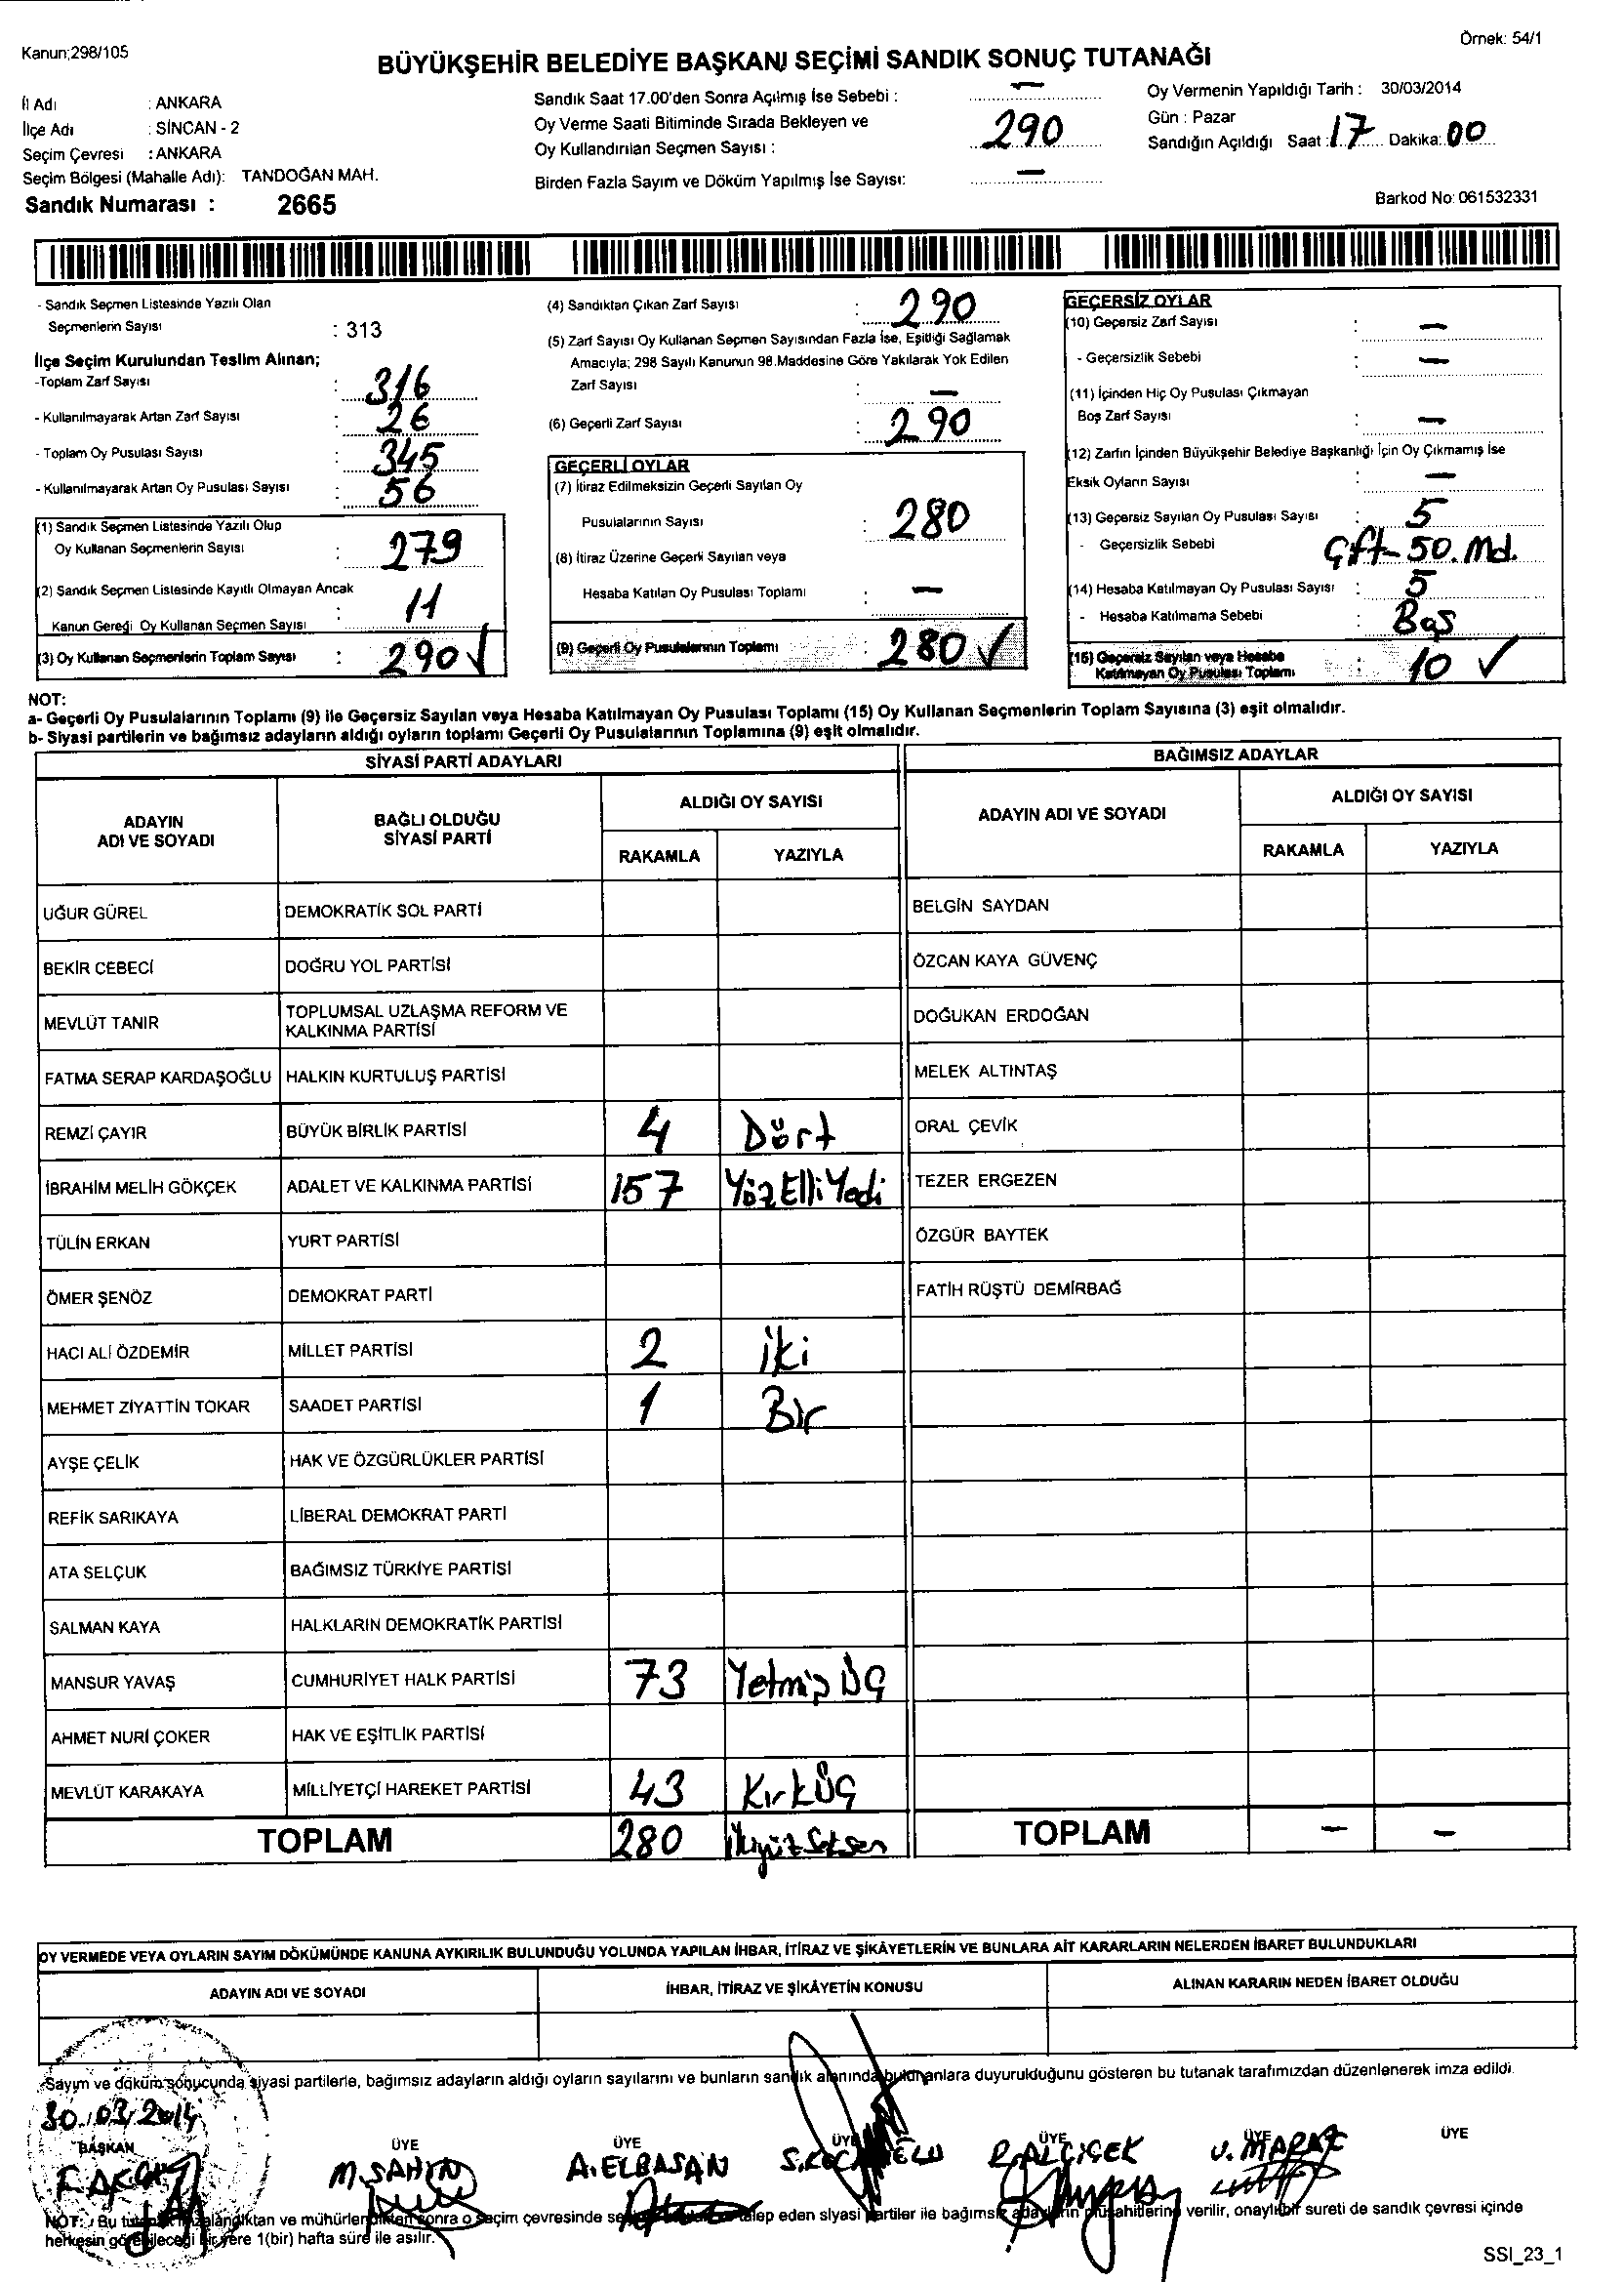 Kanun;298/105
Örnek: 54/1
BÜYÜKŞEHİR BELEDİYE BAŞKANI SEÇİMİ SANDIK SONUÇ TUTANAĞI
İl Adı : ANKARA
İlçe Adı : SİNCAN - 2
Seçim Çevresi : ANKARA
Seçim Bölgesi (Mahalle Adı): TANDOĞAN MAH.
Sandık Numarası : 2665
Sandık Saat 17.00'den Sonra Açılmış İse Sebebi : —
Oy Verme Saati Bitiminde Sırada Bekleyen ve
Oy Kullandırılan Seçmen Sayısı : 290
Birden Fazla Sayım ve Döküm Yapılmış İse Sayısı: —
Oy Vermenin Yapıldığı Tarih : 30/03/2014
Gün : Pazar
Sandığın Açıldığı Saat : 17 Dakika: 00
Barkod No: 061532331
- Sandık Seçmen Listesinde Yazılı Olan
Seçmenlerin Sayısı : 313
İlçe Seçim Kurulundan Teslim Alınan;
-Toplam Zarf Sayısı : 316
- Kullanılmayarak Artan Zarf Sayısı : 26
- Toplam Oy Pusulası Sayısı : 345
- Kullanılmayarak Artan Oy Pusulası Sayısı : 56
(1) Sandık Seçmen Listesinde Yazılı Olup
Oy Kullanan Seçmenlerin Sayısı : 279
(2) Sandık Seçmen Listesinde Kayıtlı Olmayan Ancak
Kanun Gereği Oy Kullanan Seçmen Sayısı : 11
(3) Oy Kullanan Seçmenlerin Toplam Sayısı : 290 ✓
(4) Sandıktan Çıkan Zarf Sayısı : 290
(5) Zarf Sayısı Oy Kullanan Seçmen Sayısından Fazla İse, Eşitliği Sağlamak
Amacıyla; 298 Sayılı Kanunun 98.Maddesine Göre Yakılarak Yok Edilen
Zarf Sayısı : —
(6) Geçerli Zarf Sayısı : 290
GEÇERLİ OYLAR
(7) İtiraz Edilmeksizin Geçerli Sayılan Oy
Pusulalarının Sayısı : 280
(8) İtiraz Üzerine Geçerli Sayılan veya
Hesaba Katılan Oy Pusulası Toplamı : —
(9) Geçerli Oy Pusulalarının Toplamı : 280 ✓
GEÇERSİZ OYLAR
(10) Geçersiz Zarf Sayısı : —
- Geçersizlik Sebebi : —
(11) İçinden Hiç Oy Pusulası Çıkmayan
Boş Zarf Sayısı : —
(12) Zarfın İçinden Büyükşehir Belediye Başkanlığı İçin Oy Çıkmamış İse
Eksik Oyların Sayısı : —
(13) Geçersiz Sayılan Oy Pusulası Sayısı : 5
- Geçersizlik Sebebi : Çift-50.Md.
(14) Hesaba Katılmayan Oy Pusulası Sayısı : 5
- Hesaba Katılmama Sebebi : Boş
(15) Geçersiz Sayılan veya Hesaba
Katılmayan Oy Pusulası Toplamı : 10 ✓
NOT:
a- Geçerli Oy Pusulalarının Toplamı (9) ile Geçersiz Sayılan veya Hesaba Katılmayan Oy Pusulası Toplamı (15) Oy Kullanan Seçmenlerin Toplam Sayısına (3) eşit olmalıdır.
b- Siyasi partilerin ve bağımsız adayların aldığı oyların toplamı Geçerli Oy Pusulalarının Toplamına (9) eşit olmalıdır.
SİYASİ PARTİ ADAYLARI
ADAYIN ADI VE SOYADI BAĞLI OLDUĞU SİYASİ PARTİ ALDIĞI OY SAYISI
RAKAMLA YAZIYLA
UĞUR GÜREL DEMOKRATİK SOL PARTİ
BEKİR CEBECİ DOĞRU YOL PARTİSİ
MEVLÜT TANIR TOPLUMSAL UZLAŞMA REFORM VE KALKINMA PARTİSİ
FATMA SERAP KARDAŞOĞLU HALKIN KURTULUŞ PARTİSİ
REMZİ ÇAYIR BÜYÜK BİRLİK PARTİSİ 4 Dört
İBRAHİM MELİH GÖKÇEK ADALET VE KALKINMA PARTİSİ 157 YüzElliYedi
TÜLİN ERKAN YURT PARTİSİ
ÖMER ŞENÖZ DEMOKRAT PARTİ
HACI ALİ ÖZDEMİR MİLLET PARTİSİ 2 İki
MEHMET ZİYATTİN TOKAR SAADET PARTİSİ 1 Bir
AYŞE ÇELİK HAK VE ÖZGÜRLÜKLER PARTİSİ
REFİK SARIKAYA LİBERAL DEMOKRAT PARTİ
ATA SELÇUK BAĞIMSIZ TÜRKİYE PARTİSİ
SALMAN KAYA HALKLARIN DEMOKRATİK PARTİSİ
MANSUR YAVAŞ CUMHURİYET HALK PARTİSİ 73 Yetmiş Üç
AHMET NURİ ÇOKER HAK VE EŞİTLİK PARTİSİ
MEVLÜT KARAKAYA MİLLİYETÇİ HAREKET PARTİSİ 43 KırkÜç
TOPLAM 280 İkiyüz Seksen
BAĞIMSIZ ADAYLAR
ADAYIN ADI VE SOYADI ALDIĞI OY SAYISI
RAKAMLA YAZIYLA
BELGİN SAYDAN
ÖZCAN KAYA GÜVENÇ
DOĞUKAN ERDOĞAN
MELEK ALTINTAŞ
ORAL ÇEVİK
TEZER ERGEZEN
ÖZGÜR BAYTEK
FATİH RÜŞTÜ DEMİRBAĞ
TOPLAM — —
OY VERMEDE VEYA OYLARIN SAYIM DÖKÜMÜNDE KANUNA AYKIRILIK BULUNDUĞU YOLUNDA YAPILAN İHBAR, İTİRAZ VE ŞİKÂYETLERİN VE BUNLARA AİT KARARLARIN NELERDEN İBARET BULUNDUKLARI
ADAYIN ADI VE SOYADI İHBAR, İTİRAZ VE ŞİKÂYETİN KONUSU ALINAN KARARIN NEDEN İBARET OLDUĞU
Sayım ve döküm sonucunda siyasi partilerle, bağımsız adayların aldığı oyların sayılarını ve bunların sandık alanında bulunanlara duyurulduğunu gösteren bu tutanak tarafımızdan düzenlenerek imza edildi.
30.03.2014
BAŞKAN ÜYE ÜYE ÜYE ÜYE ÜYE ÜYE
M.ŞAHİN A.ELBASAN R.ALÇIÇEK
NOT: Bu ve mühürlendikten sonra o seçim çevresinde talep eden siyasi partiler ile bağımsız adayların müşahitlerine verilir, onaylı bir sureti de sandık çevresi içinde
herkesin görebileceği bir yere 1(bir) hafta süre ile asılır.
SSI_23_1